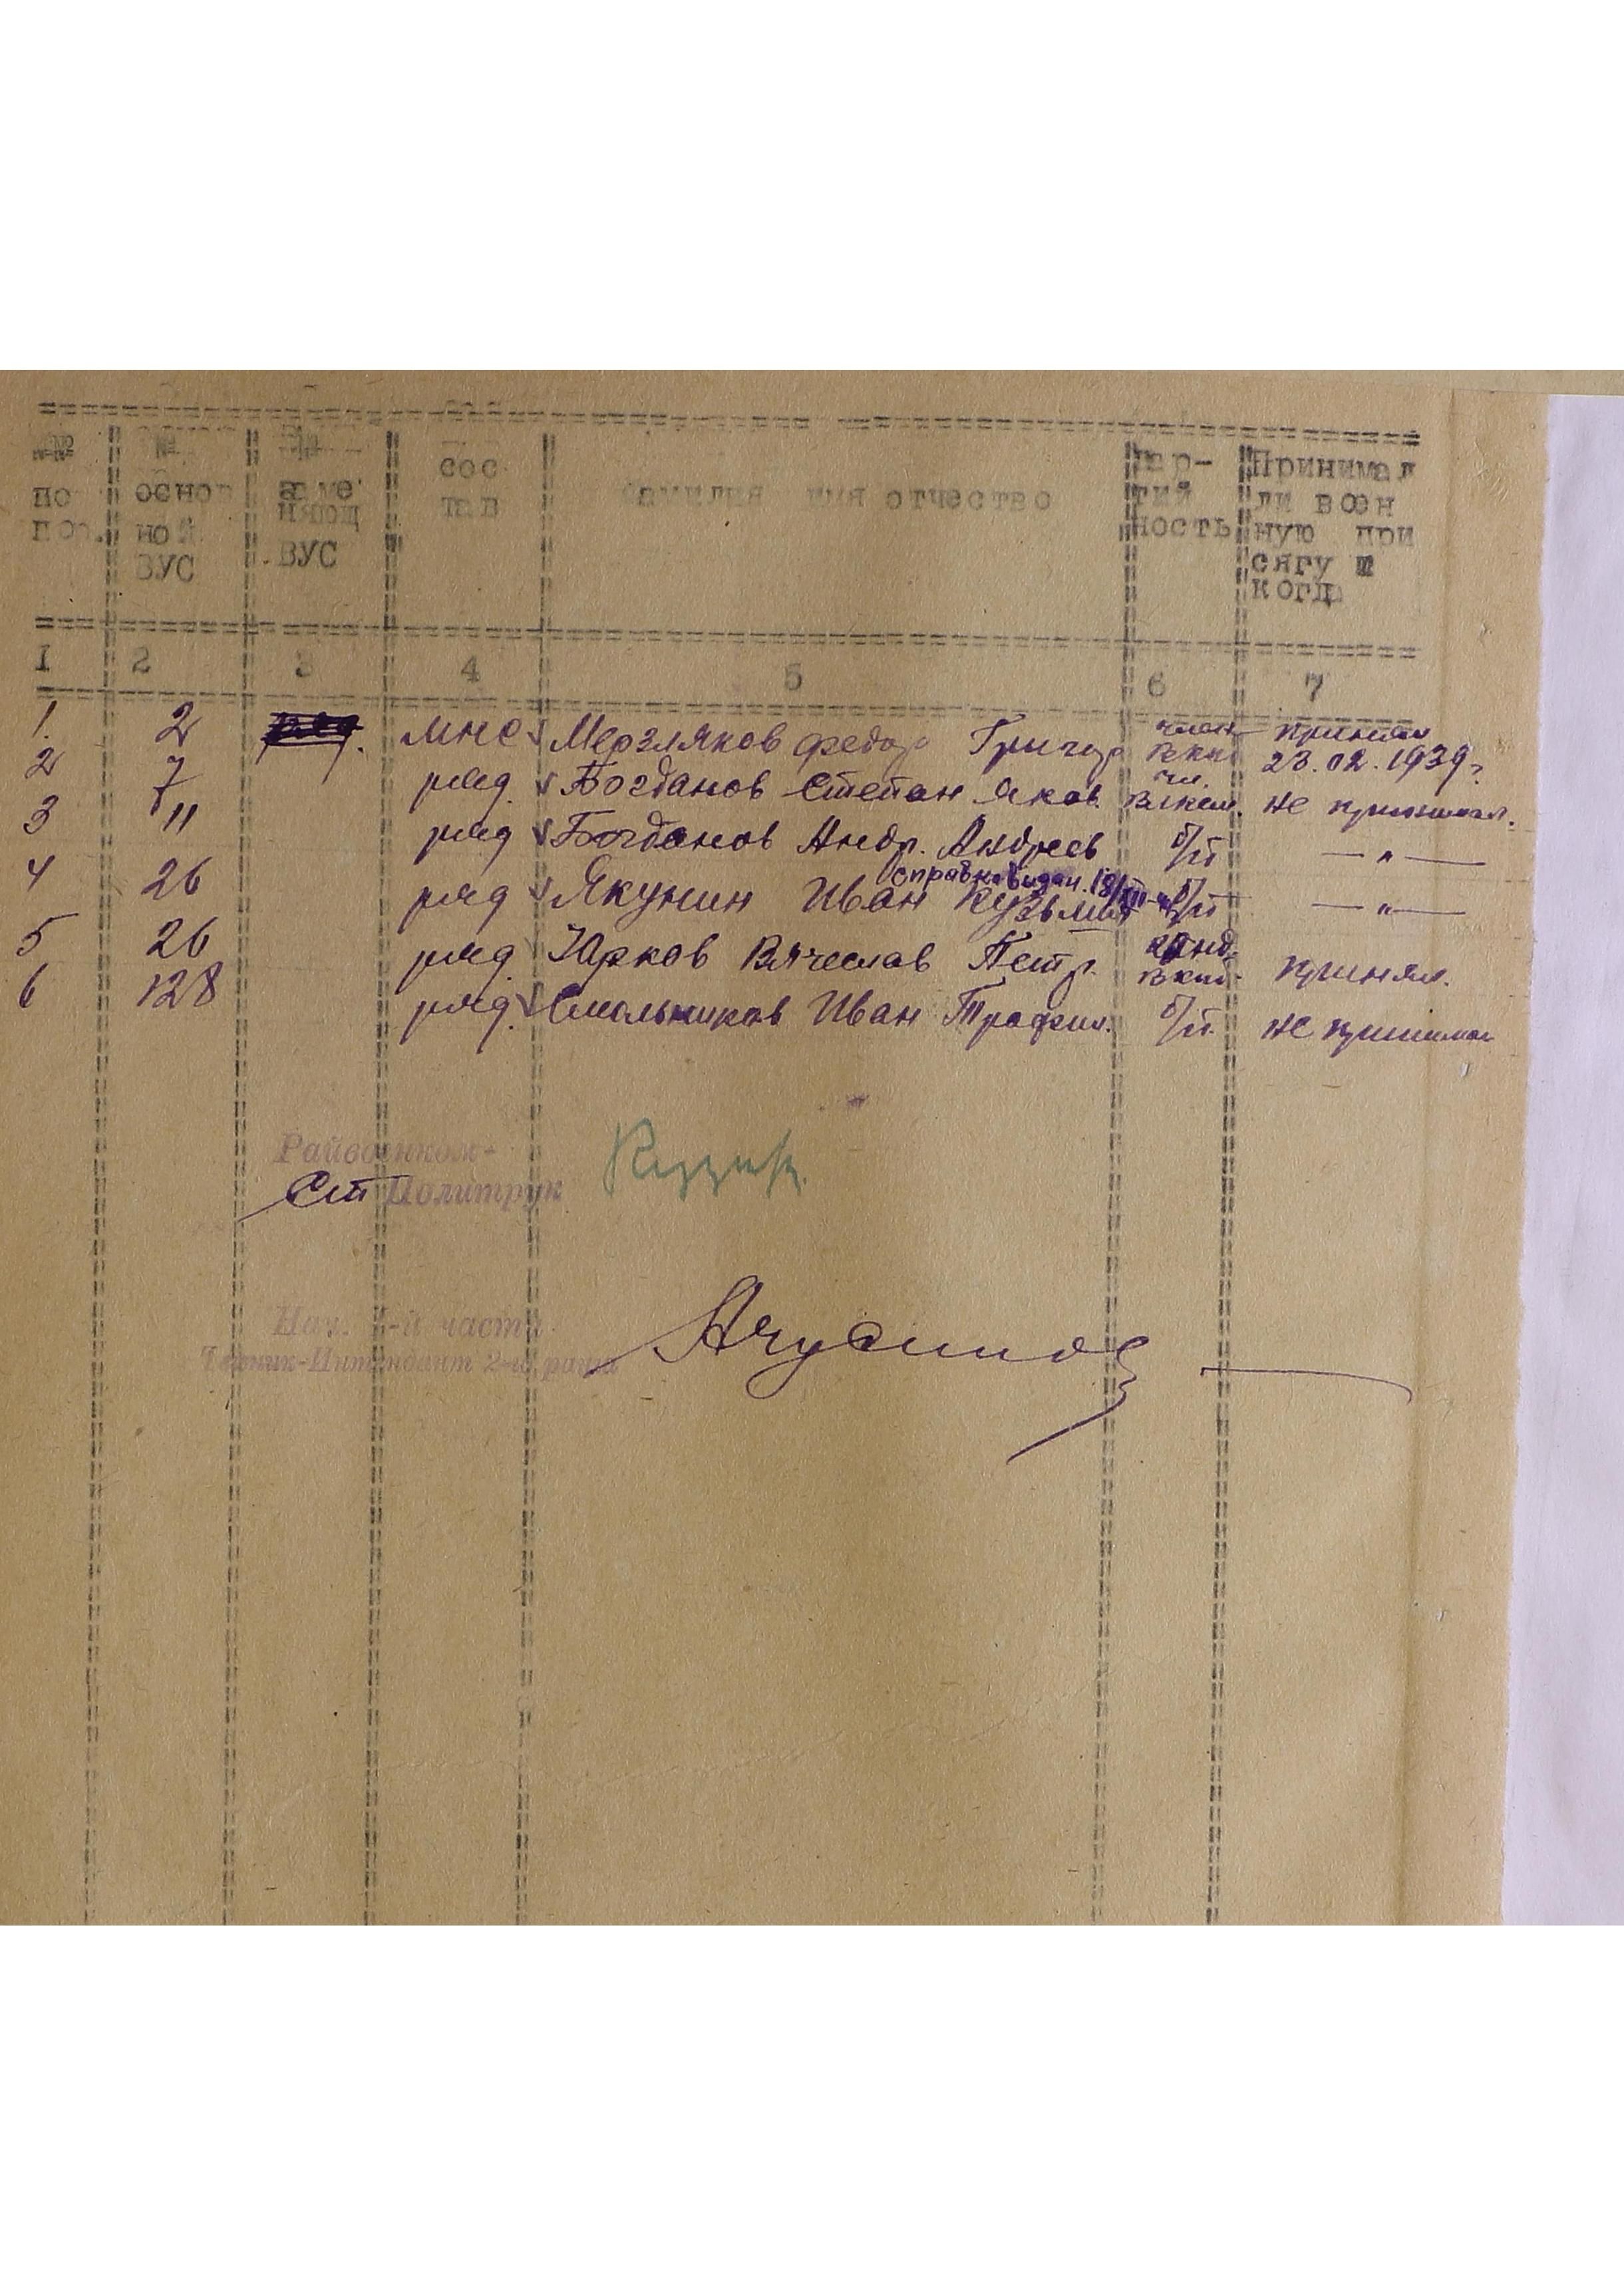 №№ по пор.
№ основ ной ВУС
заме няющ ВУС
сос тав
Фамилия имя отчество
Пар- тий ность
Принимал ли воен ную при сягу и когда
1 2 3 4 5 6 7
1. 2 мнс Мерзляков Федор Григор член ВКП принял 23.02.1939г
2 7 ряд. Богданов Степан Яков чл. не принимал.
3 11 ряд Богданов Андр. Андреев б/п —"—
справка выдан. 18/
4 26 ряд Якунин Иван Кузьмич б/п —"—
5 26 ряд. Юрков Вячеслав Петр. канд. ВКП принял.
6 128 ряд. Смольников Иван Трофим. б/п. не принимал
Райвоенком-
Ст Политрук
Нач. части
Техник-Интендант 2-го ранга